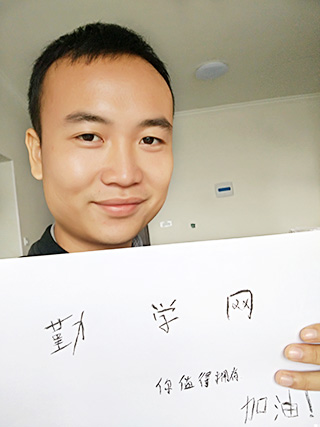 勤学网
你值得拥有
加油!